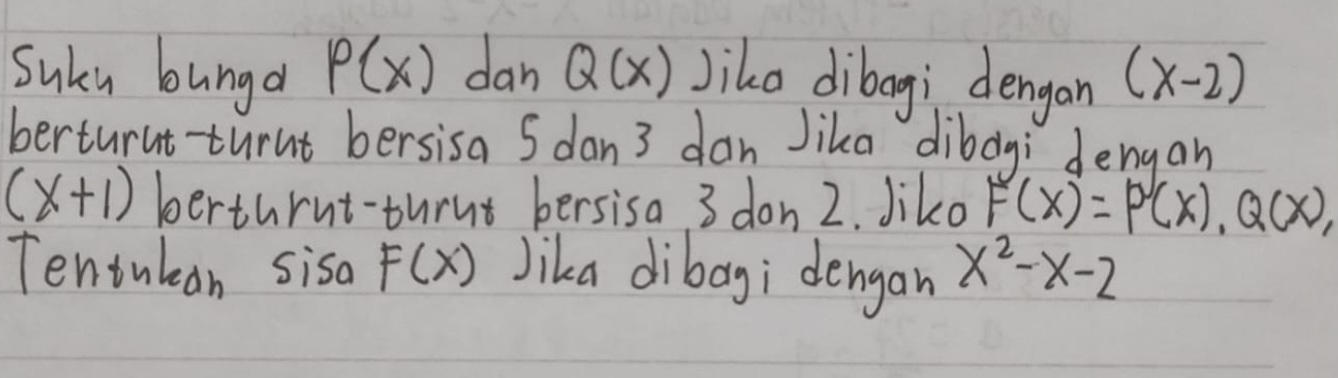 Suku bunga P(x) dan Q(x) Jika dibagi dengan (x-2)
berturut-turut bersisa 5 dan 3 dan Jika dibagi dengan
(x+1) berturut-turut bersisa 3 dan 2. Jika F(x)=P(x).Q(x),
Tentukan sisa F(x) Jika dibagi dengan x²-x-2